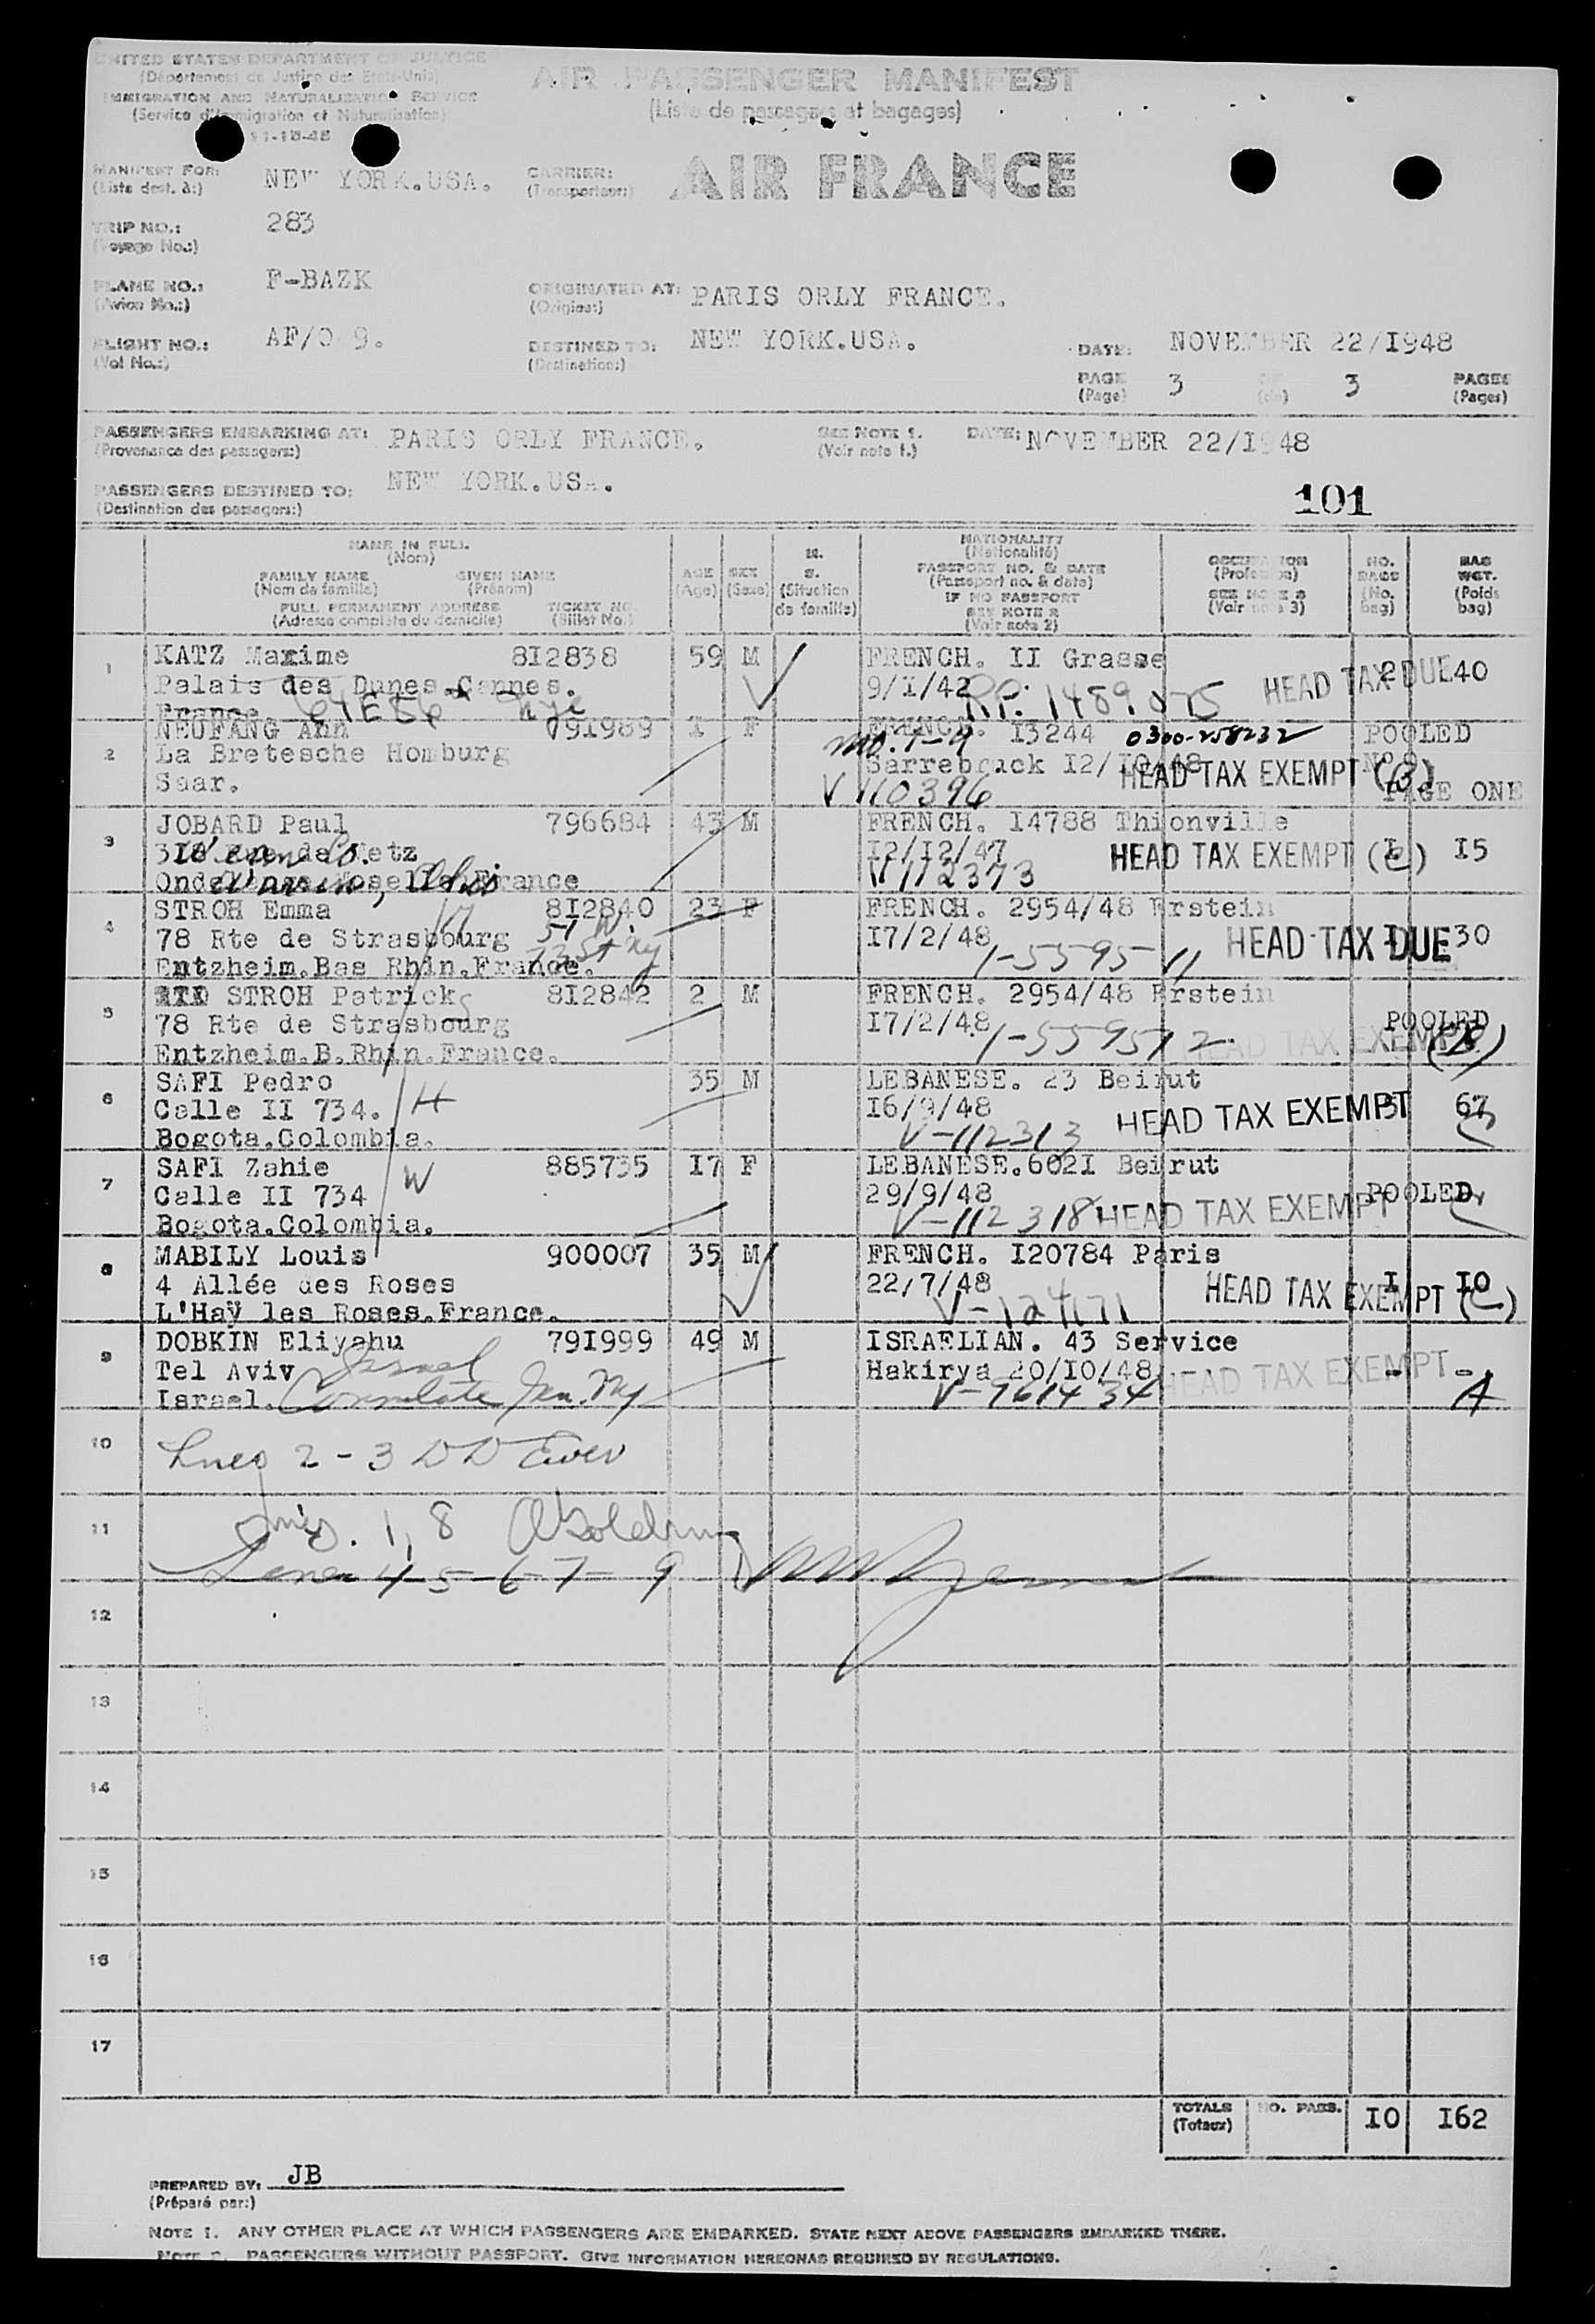 UNITED STATES DEPARTMENT OF JUSTICE
(Département de Justice des Etats-Unis)
IMMIGRATION AND NATURALIZATION SERVICE
(Service d'Immigration et Naturalisation)
11-18-48
AIR PASSENGER MANIFEST
(Liste de passagers et bagages)
MANIFEST FOR: NEW YORK.USA.
(Liste dest. à:)
CARRIER: AIR FRANCE
(Transporteur:)
TRIP NO.: 283
(Voyage No.:)
PLANE NO.: F-BAZK
(Avion No.:)
ORIGINATED AT: PARIS ORLY FRANCE.
(Origine:)
FLIGHT NO.: AF/0 9.
(Vol No.:)
DESTINED TO: NEW YORK.USA.
(Destination:)
DATE: NOVEMBER 22/I948
PAGE 3 3 PAGES
(Page) (de) (Pages)
PASSENGERS EMBARKING AT: PARIS ORLY FRANCE.
(Provenance des passagers:)
SEE NOTE 1.
(Voir note 1.)
DATE: NOVEMBER 22/I948
PASSENGERS DESTINED TO: NEW YORK.USA.
(Destination des passagers:)
101
NAME IN FULL
(Nom)
FAMILY NAME GIVEN NAME
(Nom de famille) (Prénom)
FULL PERMANENT ADDRESS TICKET NO.
(Adresse complète du domicile) (Billet No.)
AGE
(Age)
SEX
(Sexe)
M.
S.
(Situation
de famille)
NATIONALITY
(Nationalité)
PASSPORT NO. & DATE
(Passeport no. & date)
IF NO PASSPORT
SEE NOTE 2
(Voir note 2)
OCCUPATION
(Profession)
SEE NOTE 3
(Voir note 3)
NO.
BAGS
(No.
bag)
BAG
WGT.
(Poids
bag)
1 KATZ Maxime 8I2838 59 M FRENCH. II Grasse 2 40
Palais des Dunes.Cannes. 9/I/42 HEAD TAX DUE
France R.P. 1489075
2 NEUFANG Ann 79I989 I F FRENCH. I3244 0300-258232 POOLED
La Bretesche Homburg Sarrebruck I2/I0/48 HEAD TAX EXEMPT (B)
Saar. V 110396 PAGE ONE
3 JOBARD Paul 796684 43 M FRENCH. I4788 Thionville
Metz I2/I2/47 HEAD TAX EXEMPT (C) I I5
France V 112373
4 STROH Emma 8I2840 23 F FRENCH. 2954/48 Erstein
78 Rte de Strasbourg 51 W. I7/2/48 HEAD TAX DUE 30
Entzheim.Bas Rhin.France. 72 St NY 1-559511
5 STROH Patrick 8I2842 2 M FRENCH. 2954/48 Erstein
78 Rte de Strasbourg I7/2/48 POOLED
Entzheim.B.Rhin.France. 1-559512 HEAD TAX EXEMPT (B)
6 SAFI Pedro 35 M LEBANESE. 23 Beirut
Calle II 734. H I6/9/48 HEAD TAX EXEMPT 3 67
Bogota.Colombia. V-112313
7 SAFI Zahie 885735 I7 F LEBANESE.602I Beirut
Calle II 734 W 29/9/48 POOLED
Bogota.Colombia. V-112318 HEAD TAX EXEMPT
8 MABILY Louis 900007 35 M FRENCH. I20784 Paris
4 Allée des Roses 22/7/48 HEAD TAX EXEMPT (C) I I0
L'Haÿ les Roses.France. V-124171
9 DOBKIN Eliyahu 79I999 49 M ISRAELIAN. 43 Service
Tel Aviv Israel Hakirya 20/I0/48 HEAD TAX EXEMPT - -
Israel. Consulate Gen. NY V-961434 A
10 Lines 2-3
11 Lines. 1, 8
Lines 4-5-6-7-9
12
13
14
15
16
17
TOTALS NO. PASS. I0 I62
(Totaux)
PREPARED BY: JB
(Préparé par:)
NOTE 1. ANY OTHER PLACE AT WHICH PASSENGERS ARE EMBARKED. STATE NEXT ABOVE PASSENGERS EMBARKED THERE.
NOTE 2. PASSENGERS WITHOUT PASSPORT. GIVE INFORMATION HEREON AS REQUIRED BY REGULATIONS.